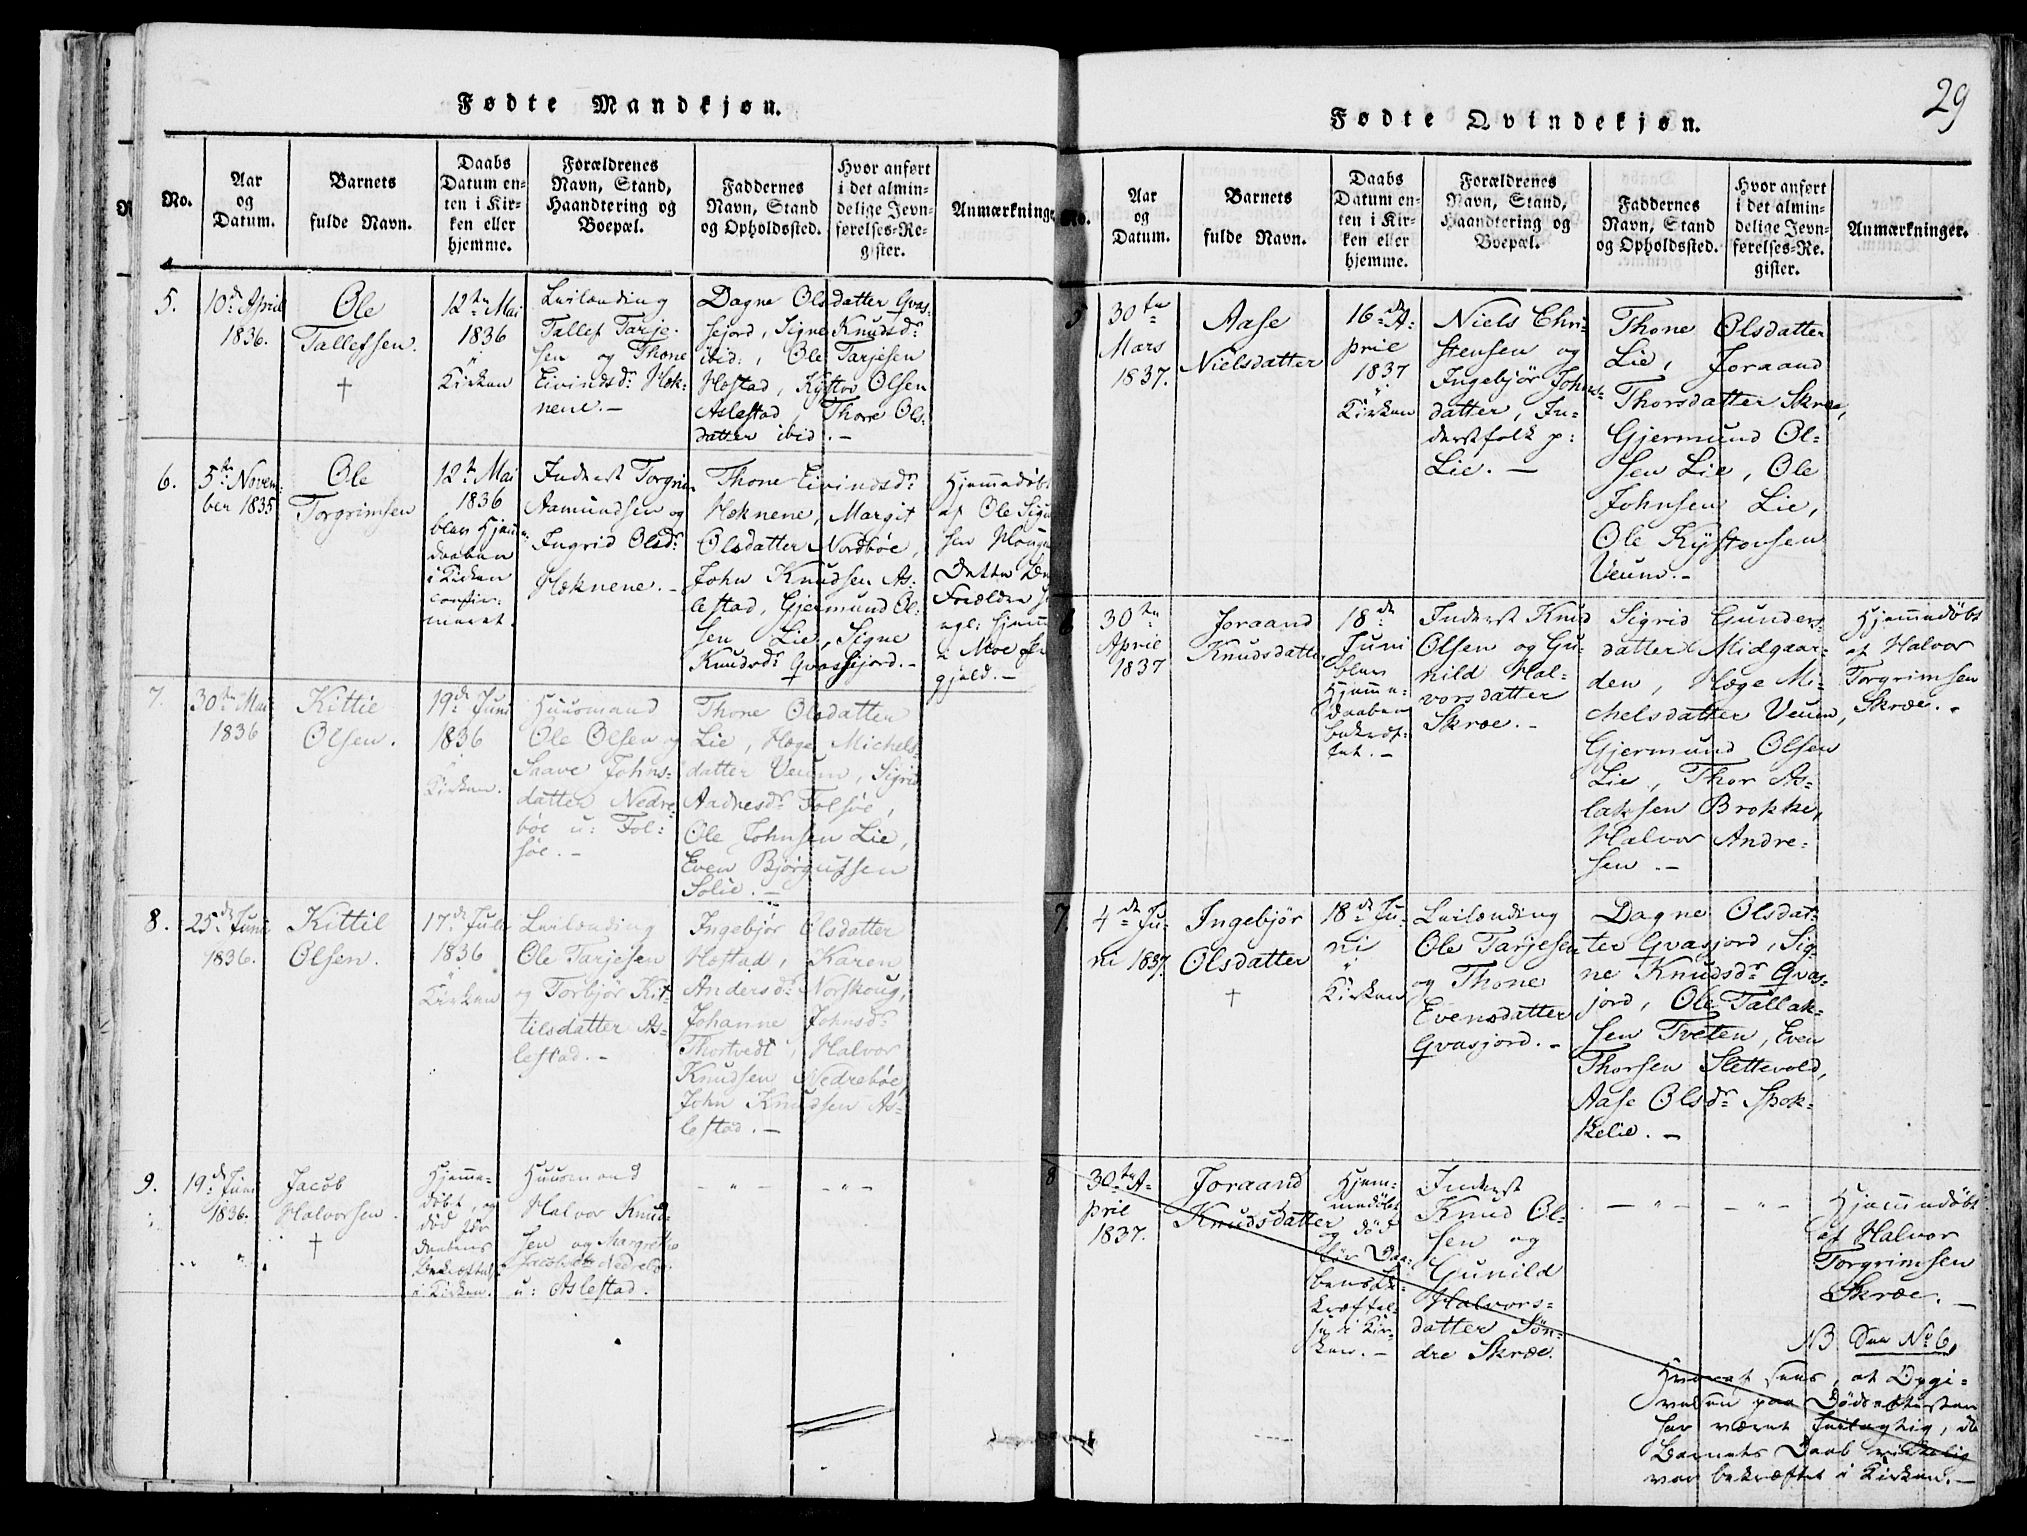 29
Fødte Mandkjøn.
No.
Aar
og
Datum.
Barnets
fulde Navn.
Daabs
Datum en-
ten i Kir-
ken eller
hjemme.
Forældrenes
Navn, Stand,
Haandtering og
Boepæl.
Faddernes
Navn, Stand
og Opholdssted.
Hvor anført
i det almin-
delige Jevn-
førelses-Re-
gister.
Anmærkninge
5.
10de April
1836.
Ole
Tallefsen.
†
12te Mai
1836
"
Kirken
Leilænding
Tallef Tarje-
sen og Thone
Eivindsdr Hæk-
nene.-
Dagne Olsdatter Qvas-
sejord, Signe Knudsdr
ibid:, Ole Tarjesen
Hæstad, Kystor Olsen
Aslestad, Thore Ols-
datter ibid.-
6.
5te Novem-
ber 1835
Ole
Torgrimsen
12te Mai
1836
blev Hjemme-
daaben
i Kirken
confir-
meret.
Inderst Torgrim
Aamundsen og
Ingrid Olsdr
Hæknene.-
Thone Eivindsdr
Hæknene, Margit
Olsdatter Nordbøe,
John Knudsen As-
lestad, Gjermund Ol-
sen Lie, Signe
Knudsdr Qvassejord.-
Hjemmedøbt
af Ole
sen
Dette
Forældre
Moe
gjeld.-
7.
30te Mai
1836
Kittil
Olsen.
19de Juni
1836
"
Kirken.
Huusmand
Ole Olsen og
Saave Johns-
datter Nedre-
bøe u: Fol-
søe.-
Thone Olsdatter
Lie, Hæge Michels-
datter Veum, Sigrid
Aadnesdr Folsøe,
Ole Johnsen Lie,
Even Bjørgufsen
Solie.-
8.
25de Juni
1836.
Kittil
Olsen.
17de Juli
1836
"
Kirken
Leilænding
Ole Tarjesen
og Torbjør Kit-
tilsdatter As-
lestad.-
Ingebjør Olsdatter
Hæstad, Karen
Andersdr Norskoug,
Johanne Johnsdr
Thortvedt, Halvor
Knudsen Nedrebøe,
John Knudsen As-
lestad.-
9.
19de Juni
1836.
Jacob
Halvorsen.
†
Hjemme-
døbt, og
død før
Daabens
Bekræftelse
i Kirken.
Huusmand
Halvor Knud-
sen og Margrethe
Nedrebøe
u: Aslestad.
- " -
- " -
Fødte Qvindekjøn.
No.
Aar
og
Datum.
Barnets
fulde Navn.
Daabs
Datum en-
ten i Kir-
ken eller
hjemme.
Forældrenes
Navn, Stand,
Haandtering og
Boepæl.
Faddernes
Navn, Stand
og Opholdssted.
Hvor anført
i det almin-
delige Jevn-
førelses-Re-
gister.
Anmærkninger.
5
30te
Mars
1837.
Aase
Nielsdatter
16de A-
pril
1837
"
Kirken
Niels Chri-
stensen og
Ingebjør Johns-
datter, In-
derstfolk p:
Lie.-
Thone Olsdatter
Lie, Joraand
Thorsdatter Skræe,
Gjermund Ol-
sen Lie, Ole
Johnsen Lie,
Ole Kystorsen
Veum.-
6
30te
April
1837
Joraand
Knudsdatter
18de
Juni
blev
Hjemme-
daaben
bekræf-
tet.-
Inderst Knud
Olsen og Gu-
nild Hal-
vorsdatter
Skræe.-
Sigrid Gunders-
datter Midgaar-
den, Hæge Mi-
chelsdatter Veum,
Gjermund Olsen
Lie, Thor As-
laksen Brokke,
Halvor Andre-
sen.-
Hjemmedøbt
af Halvor
Torgrimsen
Skræe.-
7.
4de Ju-
ni 1837.
Ingebjør
Olsdatter
†
18de Ju-
ni
"
Kirken
Leilænding
Ole Tarjesen
og Thone
Evensdatter
Qvasjord.-
Dagne Olsdat-
ter Qvasjord, Sig-
ne Knudsdr Qvas-
jord, Ole Tallak-
sen Tveten, Even
Thorsen Slettevold,
Aase Olsdr Spok-
kelie.-
8
30te A-
pril
1837.
Joraand
Knudsdatter
Hjem-
medøbt
og død
før Daa-
bens Be-
kræftel-
se i Kir-
ken.-
Inderst
Knud Ol-
sen og
Gunild
Halvors-
datter Søn-
dre Skræe.
- " -
- " -
Hjemmedøbt
af Halvor
Torgrimsen
Skræe.-
NB See No 6,
Hvoraf sees, at Opgi-
velsen paa Dødslisten
har været feilagtig, da
Barnets Daab virkelig
var bekræftet i Kirken.-